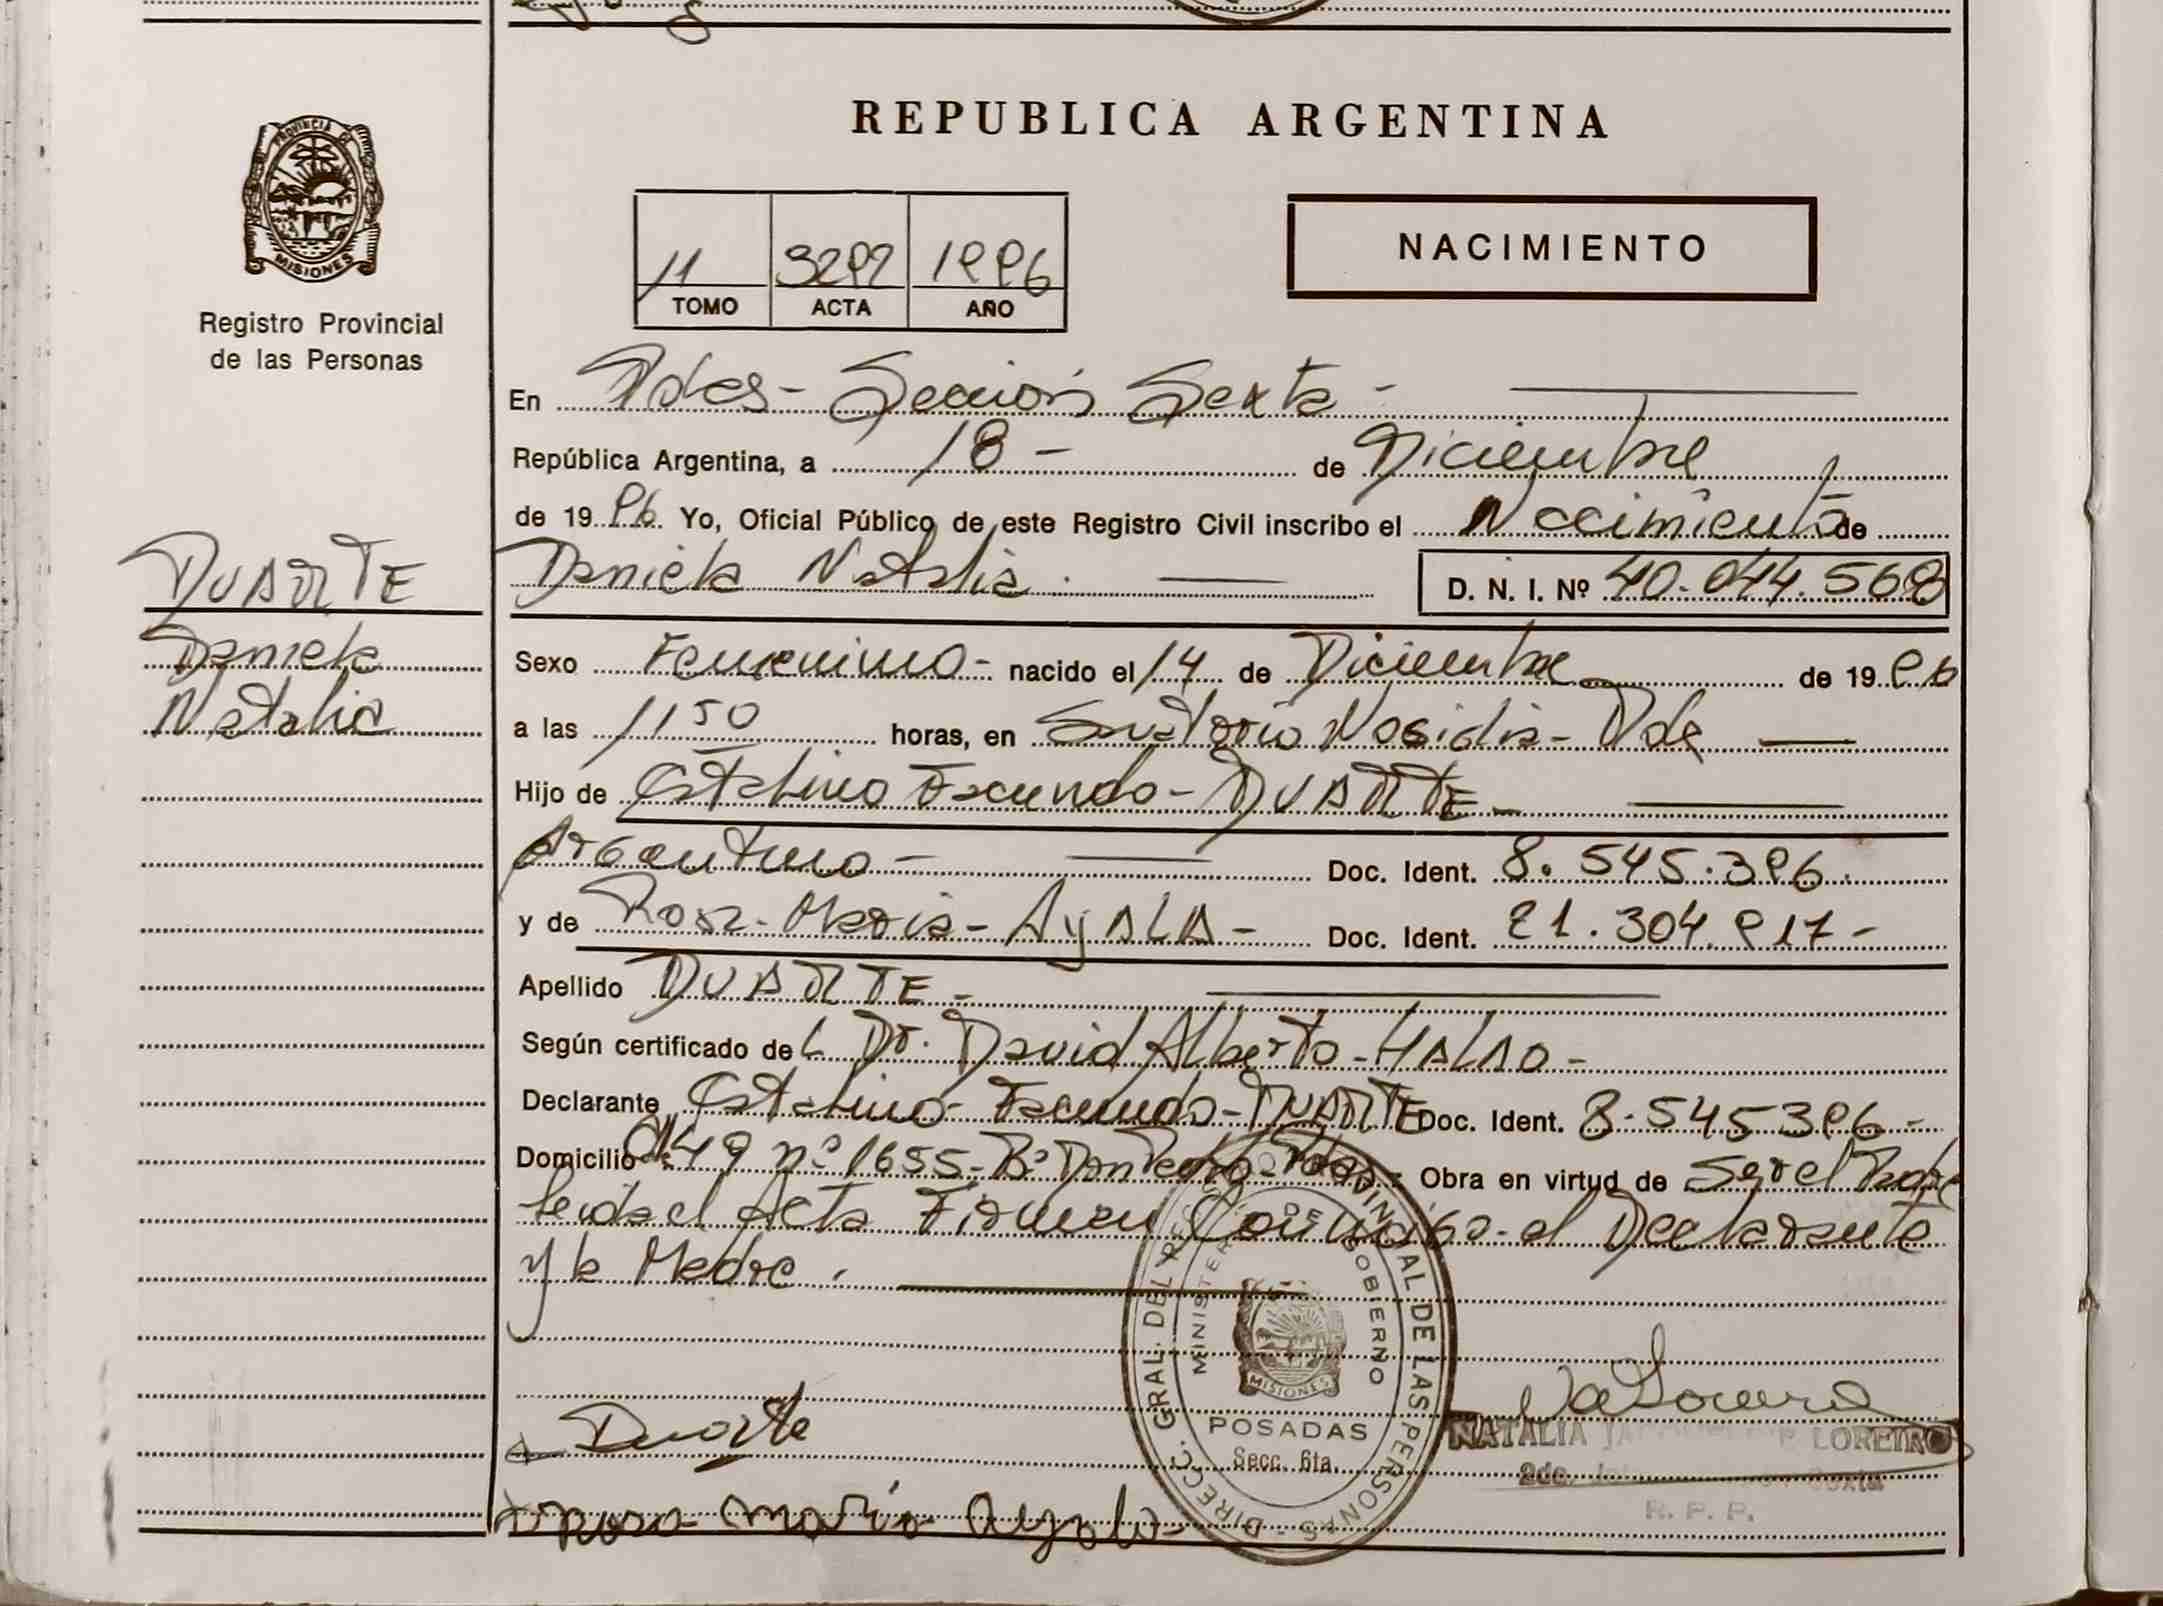 REPUBLICA ARGENTINA
PROVINCIA DE MISIONES
Registro Provincial
de las Personas
11 3292 1996
TOMO ACTA AÑO
NACIMIENTO
En Pdas - Sección Sexta -
República Argentina, a 18 - de Diciembre
de 19 96 Yo, Oficial Público de este Registro Civil inscribo el Nacimiento de
DUARTE
Daniela
Natalia
Daniela Natalia . D. N. I. Nº 40.044.568
Sexo Femenino - nacido el 14 de Diciembre de 19 96
a las 11 50 horas, en Sanatorio Nosiglia - Pdas
Hijo de Estalino Facundo - DUARTE -
Argentino - Doc. Ident. 8.545.396.
y de Rosa - Maria - AyALA - Doc. Ident. 21.304.917 -
Apellido DUARTE -
Según certificado del Dr. David Alberto - HALAO -
Declarante Estalino - Facundo - DUARTE Doc. Ident. 8.545396 -
Domicilio 49 nº 1655 - Bº Don Pedro - Pdas - Obra en virtud de Ser el Padre
leida el Acta Firman Conmigo - el Declarante
y la Madre .
Duarte
Rosa Maria Ayala
DIREC. GRAL. DEL REG. PROVINCIAL DE LAS PERSONAS
MINISTERIO DE GOBIERNO
MISIONES
POSADAS
Secc. 6ta.
NATALIA LOREIRO
R. P. P.